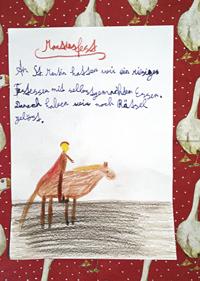 Martinsfest
An St. Martin hatten wir ein riesiges
Festessen mit selbstgemachten Essen.
Danach haben wir noch Rätsel
gelöst.